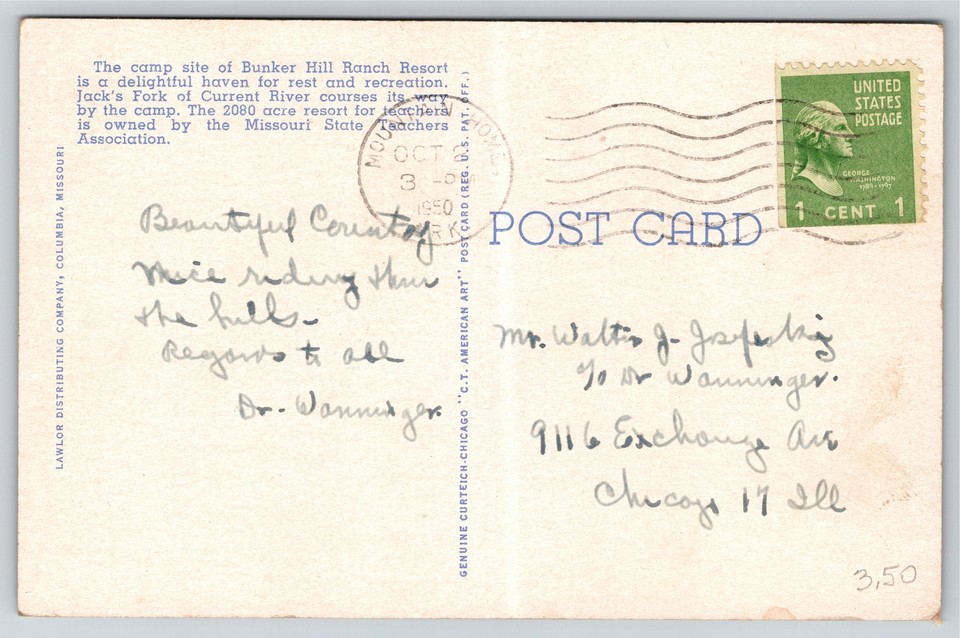 The camp site of Bunker Hill Ranch Resort
is a delightful haven for rest and recreation.
Jack's Fork of Current River courses its way
by the camp. The 2080 acre resort for teachers
is owned by the Missouri State Teachers
Association.
LAWLOR DISTRIBUTING COMPANY, COLUMBIA, MISSOURI
Beautiful Country
Nice riding thru
the hills.
Regards to all
Dr. Wanninger
GENUINE CURTEICH-CHICAGO "C.T. AMERICAN ART" POST CARD (REG. U.S. PAT. OFF.)
MOUNTAIN HOME
OCT
3
1950
ARK
UNITED
STATES
POSTAGE
GEORGE
WASHINGTON
1789-1797
1 CENT 1
POST CARD
Mr. Walter J.
c/o Dr Wanninger.
9116 Exchange Ave
Chicago 17 Ill
3,50